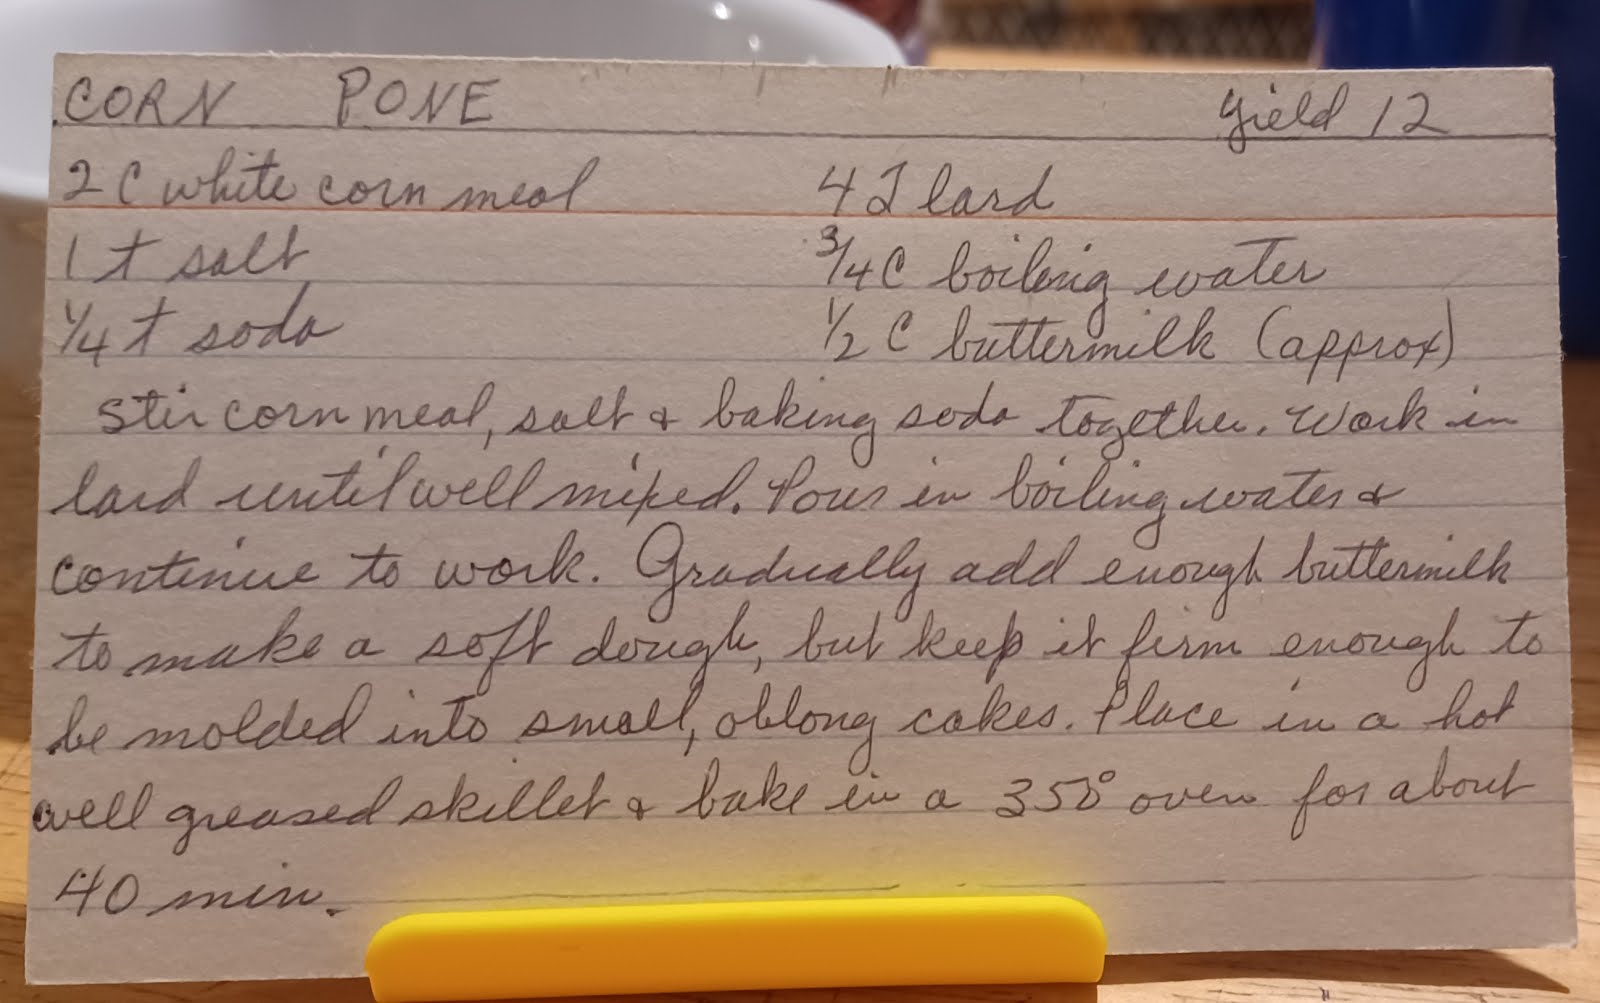 CORN PONE yield 12
2 C white corn meal 4 T lard
1 t salt 3/4 C boiling water
1/4 t soda 1/2 C buttermilk (approx)
Stir corn meal, salt & baking soda together. Work in
lard until well mixed. Pour in boiling water &
continue to work. Gradually add enough buttermilk
to make a soft dough, but keep it firm enough to
be molded into small, oblong cakes. Place in a hot
well greased skillet & bake in a 350° oven for about
40 min.